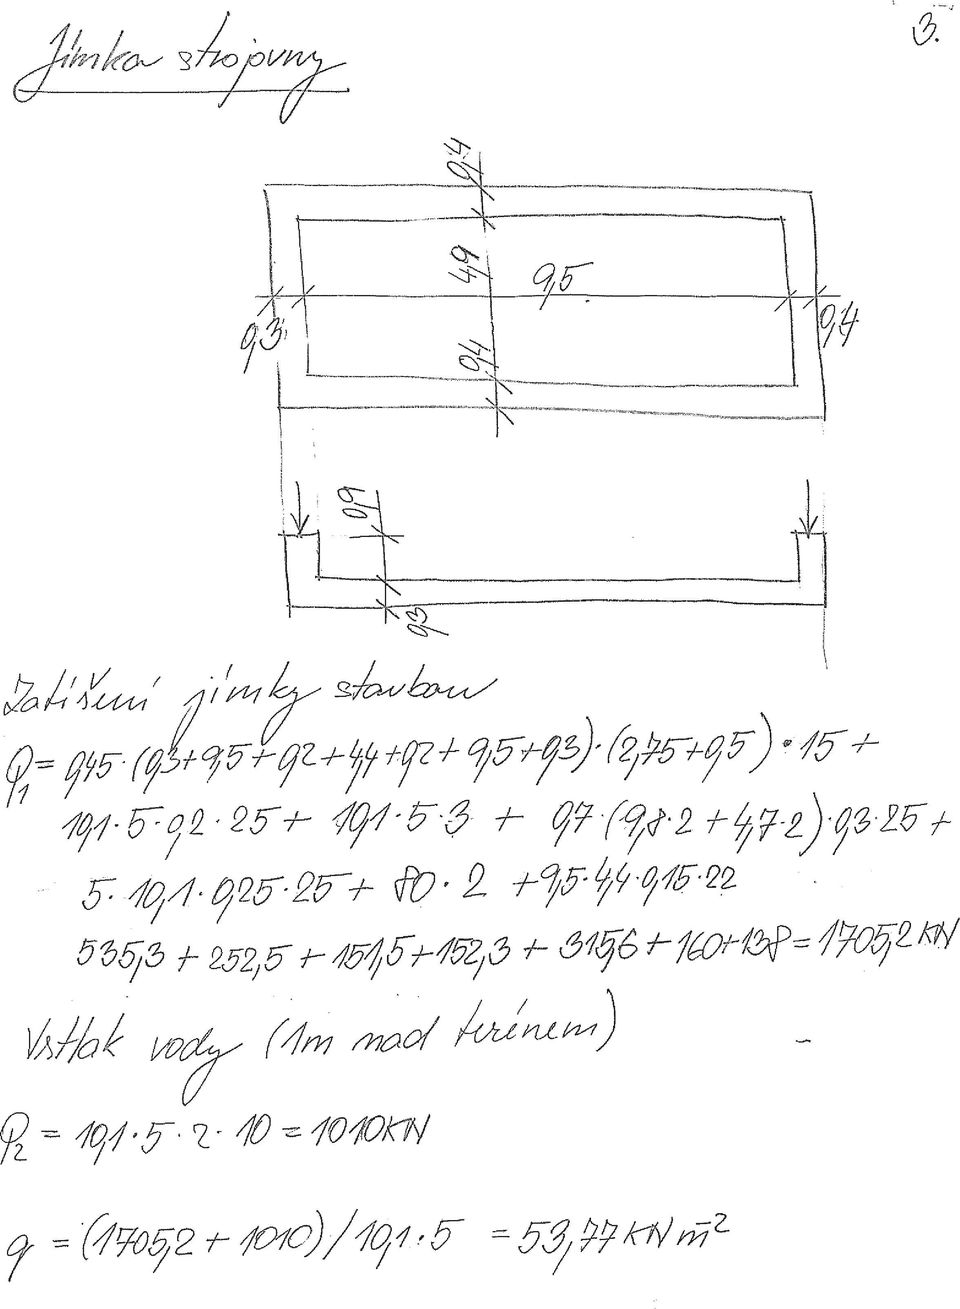 3.
Jímka strojovny
0,4
4,9
9,5
0,3
0,4
0,4
0,9
0,3
Zatížení jímky stavbou
Q₁ = 0,45·(0,3+9,5+0,2+4,4+0,2+9,5+0,3)·(2,75+0,5)·15 +
10,1·5·0,2·25 + 10,1·5·3 + 0,7·(9,8·2+4,7·2)·0,3·25 +
5·10,1·0,25·25 + 80·2 + 9,5·4,4·0,15·22
535,3 + 252,5 + 151,5 + 152,3 + 315,6 + 160 + 138 = 1705,2 KN
Vztlak vody (1m nad terénem)
Q₂ = 10,1·5·2·10 = 1010 KN
q = (1705,2 + 1010) / 10,1·5 = 53,77 KN m⁻²